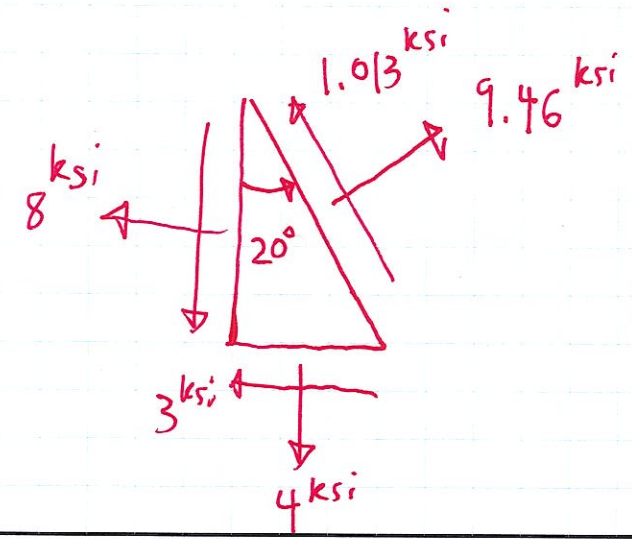 1.013 ksi
9.46 ksi
8 ksi
20°
3 ksi
4 ksi